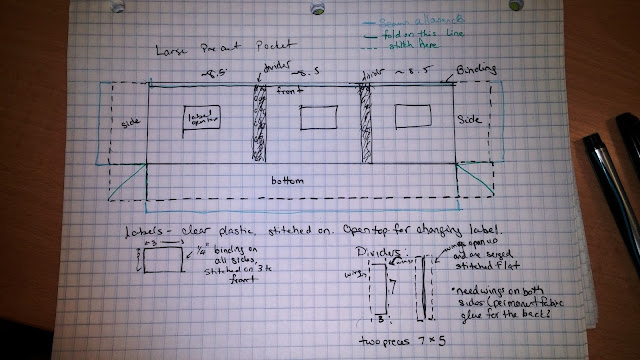 Seam allowance
fold on this line
stitch here
Large Pocket
divider
~8.5
~8.5
divider
~8.5
Binding
front
side
label
Side
bottom
Labels - clear plastic, stitched on. Open top for changing label.
3
1/4"
binding on
all sides,
stitched on 3 to
front
Dividers:
wing
wings
7
3
wings open up
and are
stitched flat
*need wings on both
sides (permanent fabric
glue for the back?
two pieces 7x5